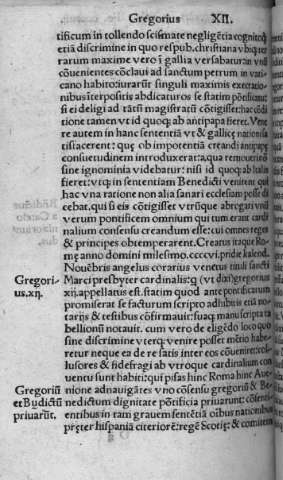 Gregorius XII.
tificum in tollendo scismate negligētia cognitoq̃
etiā discrimine in quo respub. christiana vbiq̃ ter
rarum maxime vero ī gallia versabatur vn
cōuenientes cōclaui ad sanctum petrum in vati
cano habito: iurarūt singuli maximis execratio
nibus īterpositis abdicaturos se statim pōtificatum
si ei deligi ad tātū magistratū cōtigisset: hac cōdi
tione tamen vt id quoq̃ ab antipapa fieret. Veni
re autem in hanc sententiā vt & gallicę nationi sa
tisfacerent: quę ob impotentiā creandi antipapę
consuetudinem introduxerat: a qua remoueri nō
sine ignominia videbatur: nisi id quoq̃ ab Italia
fieret: vtiq̃ in sententiam Benedicti venirent qui
hac vna ratione non alia sanari ecclesiam posse di
cebat, qui si eis cōtigisset vtrūque abrogari vnū
verum pontificem omnium qui tum erant cardi
nalium consensu creandum esse: cui omnes reges
& principes obtemperarent. Creatus itaque Ro-
mę anno domini milesimo. ccccvi. pridie kalend.
Nouēbris angelus corarius venetus tituli sancti
Gregori-
us. xij.
Marci presbyter cardinalis: q̃ (vt dixi) gregorius
xij. appellatus est. statim quod ante pontificatum
promiserat se facturum scripto adhibitis etiā no
tarijs & testibus cōfirmauit: suaq̃ manu scripta ta
bellionū notauit. cum vero de eligēdo loco quo
sine discrimine vterq̃ venire posset mētio habe-
retur neque ea de re satis inter eos cōueniret: col-
lusores & fidefragi ab vtroque cardinalium con
uentu sunt habiti: qui pisas hinc Roma hinc Aue
Gregoriū
et Bńdictū
priuarūt.
nione adnauigātes vno cōsensu gregoriū & Be
nedictum dignitate pōtificia priuarunt: cōsenti
entibus in tam grauem sentētiā oibus nationibus
pręter hispaniā citeriorē: regē Scotię: & comitem